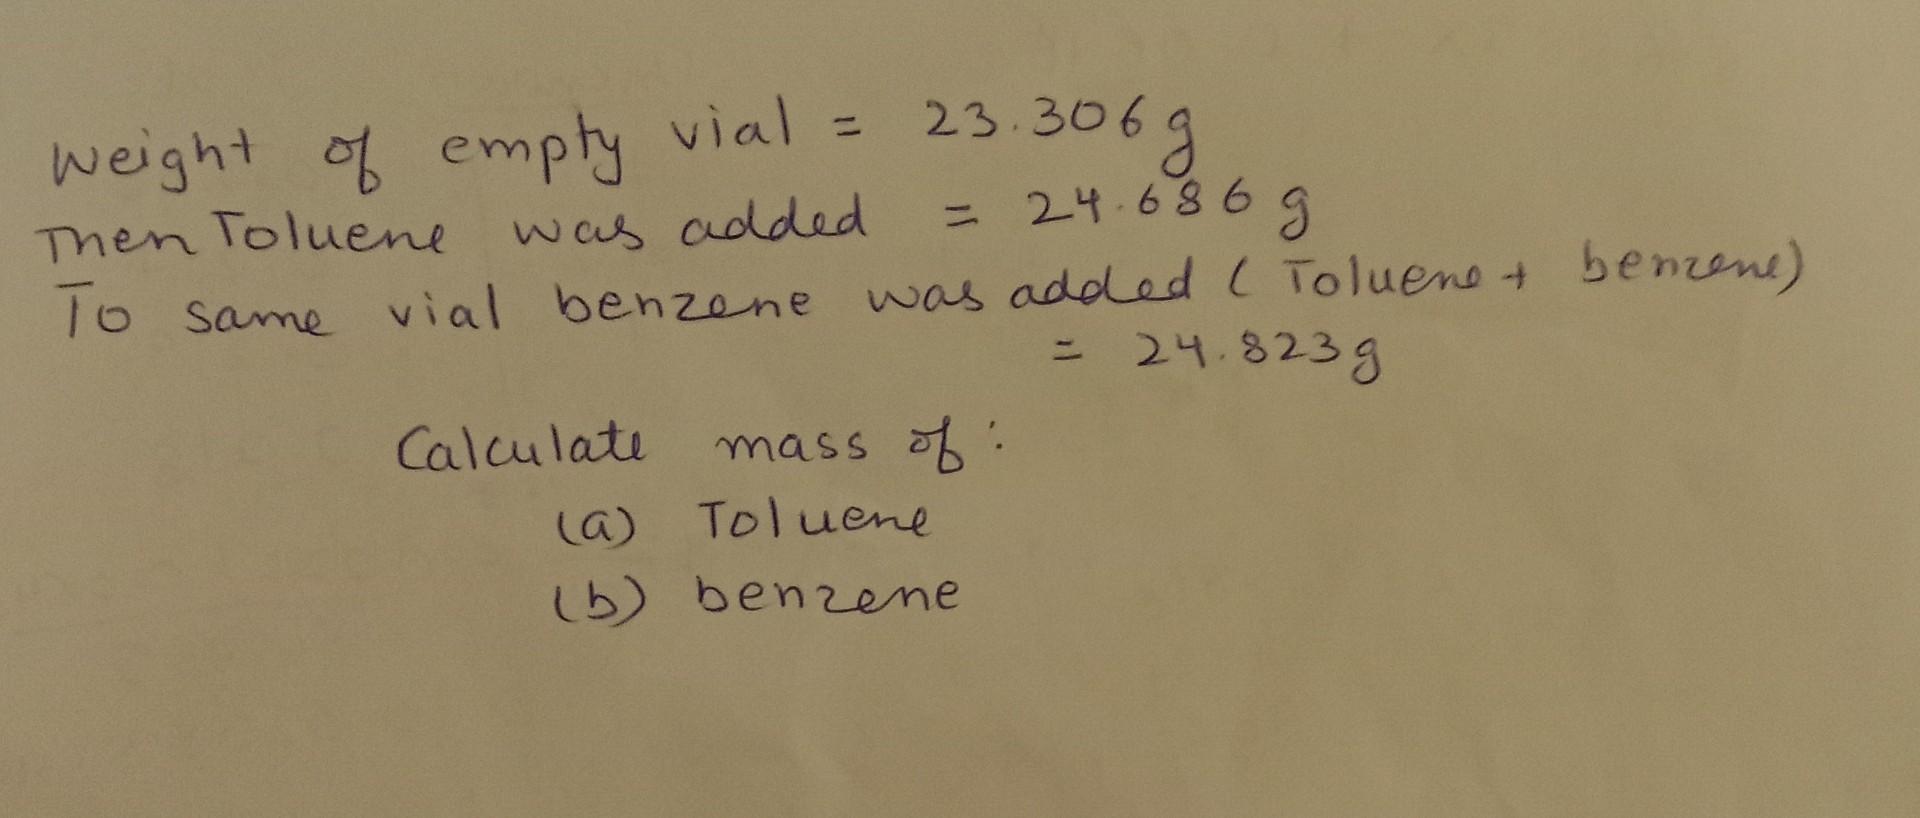 Weight of empty vial = 23.306 g
Then Toluene was added = 24.686 g
To same vial benzene was added ( Toluene + benzene)
= 24.823g
Calculate mass of :
(a) Toluene
(b) benzene